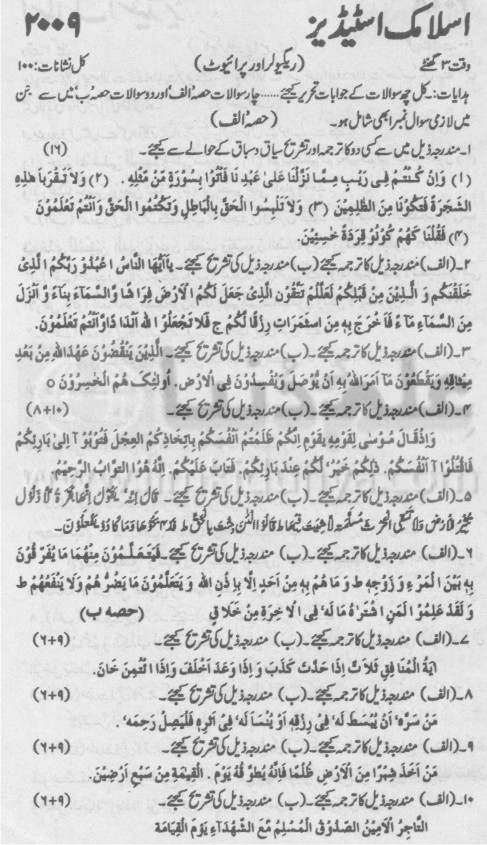 اسلامک اسٹیڈیز ۲۰۰۹
وقت ۳ گھنٹے (ریگولر اور پرائیوٹ) کل نشانات: ۱۰۰
ہدایات:۔ کل چھ سوالات کے جوابات تحریر کیجئے ...... چار سوالات حصہ الف اور دو سوالات حصہ ب میں سے جن
میں لازمی سوال نمبر ۱ بھی شامل ہو۔ (حصہ الف)
۱۔ مندرجہ ذیل میں سے کسی دو کا ترجمہ اور تشریح سیاق و سباق کے حوالے سے کیجئے۔ (۱۶)
(۱) وَاِنْ كُنْتُمْ فِی رَیْبٍ مِمَّا نَزَّلْنَا عَلیٰ عَبْدِ نَا فَاْتُوْا بِسُوْرَةٍ مِّنْ مِّثْلِهٖ۔ (۲) وَلَا تَقْرَبَا هٰذِهِ
الشَّجَرَةَ فَتَكُوْنَا مِنَ الظّٰلِمِیْنَ (۳) وَلَا تَلْبِسُوا الْحَقَّ بِالْبَاطِلِ وَتَكْتُمُوا الْحَقَّ وَاَنْتُمْ تَعْلَمُوْنَ
(۴) فَقُلْنَا لَهُمْ كُوْنُوْ قِرَدَةً خٰسِئِیْنَ۔
۲۔ (الف) مندرجہ ذیل کا ترجمہ کیجئے۔ (ب) مندرجہ ذیل کی تشریح کیجئے۔ یٰاَیُّهَا النَّاسُ اعْبُدُوْ رَبَّكُمُ الَّذِیْ
خَلَقَكُمْ وَ الَّذِیْنَ مِنْ قَبْلِكُمْ لَعَلَّكُمْ تَتَّقُوْنَ الَّذِیْ جَعَلَ لَكُمُ الْاَرْضَ فِرَا شًا وَّالسَّمَآءَ بِنَآءً وَّ اَنْزَلَ
مِنَ السَّمَآءِ مَآءً فَاَ خْرَجَ بِهٖ مِنَ الثَّمَرَاتِ رِزْقًا لَّكُمْ ج فَلَا تَجْعَلُوْا لِلّٰهِ اَنْدَا دًا وَّاَنْتُمْ تَعْلَمُوْنَ۔
۳۔ (الف) مندرجہ ذیل کا ترجمہ کیجئے۔ (ب) مندرجہ ذیل کی تشریح کیجئے۔ الَّذِیْنَ یَنْقُضُوْنَ عَهْدَاللهِ مِنْ بَعْدِ
مِیْثَاقِهٖ وَیَقْطَعُوْنَ مَآ اَمَرَاللهُ بِهٖ اَنْ یُّوْصَلَ وَیُفْسِدُوْنَ فِی الْاَرْضِ۔ اُولٰٓئِكَ هُمُ الْخٰسِرُوْنَ ٥
۴۔ (الف) مندرجہ ذیل کا ترجمہ کیجئے۔ (ب) مندرجہ ذیل کی تشریح کیجئے۔ (۸+۱۰)
وَاِذْقَالَ مُوْسٰی لِقَوْمِهٖ یٰقَوْمِ اِنَّكُمْ ظَلَمْتُمْ اَنْفُسَكُمْ بِاتِّخَاذِكُمُ الْعِجْلَ فَتُوْبُوْ آ اِلیٰ بَارِئِكُمْ
فَاقْتُلُوْا آ اَنْفُسَكُمْ۔ ذٰلِكُمْ خَیْرٌ لَّكُمْ عِنْدَ بَارِئِكُمْ۔ فَتَابَ عَلَیْكُمْ۔ اِنَّهٗ هُوَا التَّوَّابُ الرَّحِیْمُ۔
۵۔ (الف) مندرجہ ذیل کا ترجمہ کیجئے۔ (ب) مندرجہ ذیل کی تشریح کیجئے۔ قَالَ اِنَّهٗ یَقُوْلُ اِنَّهَا بَقَرَةٌ لَّا ذَلُوْلٌ
تُثِیْرُ الْاَرْضَ وَلَا تَسْقِی الْحَرْثَ مُسَلَّمَةٌ لَّا شِیَةَ فِیْهَا ط قَالُوا الْئٰنَ جِئْتَ بِالْحَقِّ ط فَذَ بَحُوْهَا وَمَا كَا دُوْ یَفْعَلُوْنَ۔
۶۔ (الف) مندرجہ ذیل کا ترجمہ کیجئے۔ (ب) مندرجہ ذیل کی تشریح کیجئے۔ فَیَتَعَلَّمُوْنَ مِنْهُمَا مَا یُفَرِّ قُوْنَ
بِهٖ بَیْنَ الْمَرْءِ وَ زَوْجِهٖ ط وَ مَا هُمْ بِهٖ مِنْ اَحَدٍ اِلَّا بِاِ ذْنِ اللهِ وَ یَتَعَلَّمُوْنَ مَا یَضُرُّ هُمْ وَلَا یَنْفَعُهُمْ ط
وَ لَقَدْ عَلِمُوْ الَمَنِ اشْتَرٰهُ مَا لَهٗ فِی الْاٰ خِرَةِ مِنْ خَلَا قٍ (حصہ ب)
۷۔ (الف) مندرجہ ذیل کا ترجمہ کیجئے۔ (ب) مندرجہ ذیل کی تشریح کیجئے۔ (۶+۹)
اٰیَةُ الْمُنَا فِقِ ثَلَا ثٌ اِذَا حَدَّثَ كَذَبَ وَ اِذَا وَعَدَ اَخْلَفَ وَاِذَا ائْتُمِنَ خَانَ۔
۸۔ (الف) مندرجہ ذیل کا ترجمہ کیجئے۔ (ب) مندرجہ ذیل کی تشریح کیجئے۔ (۶+۹)
مَنْ سَرَّهٗ اَنْ یُّبْسَطَ لَهٗ فِیْ رِزْقِهٖ اَوْ یُنْسَاَ لَهٗ فِیْ اَثَرِهٖ فَلْیَصِلْ رَحِمَهٗ۔
۹۔ (الف) مندرجہ ذیل کا ترجمہ کیجئے۔ (ب) مندرجہ ذیل کی تشریح کیجئے۔ (۶+۹)
مَنْ اَخَذَ شِبْرًا مِنَ الْاَرْضِ ظُلْمًا فَاِنَّهٗ یُطَوَّ قُهٗ یَوْمَ۔ الْقِیٰمَةِ مِنْ سَبْعِ اَرْضِیْنَ۔
۱۰۔ (الف) مندرجہ ذیل کا ترجمہ کیجئے۔ (ب) مندرجہ ذیل کی تشریح کیجئے۔ (۶+۹)
التَّاجِرُ الْاَمِیْنُ الصَّدُوْقُ الْمُسْلِمُ مَعَ الشُّهَدَآءِ یَوْمَ الْقِیَامَةِ